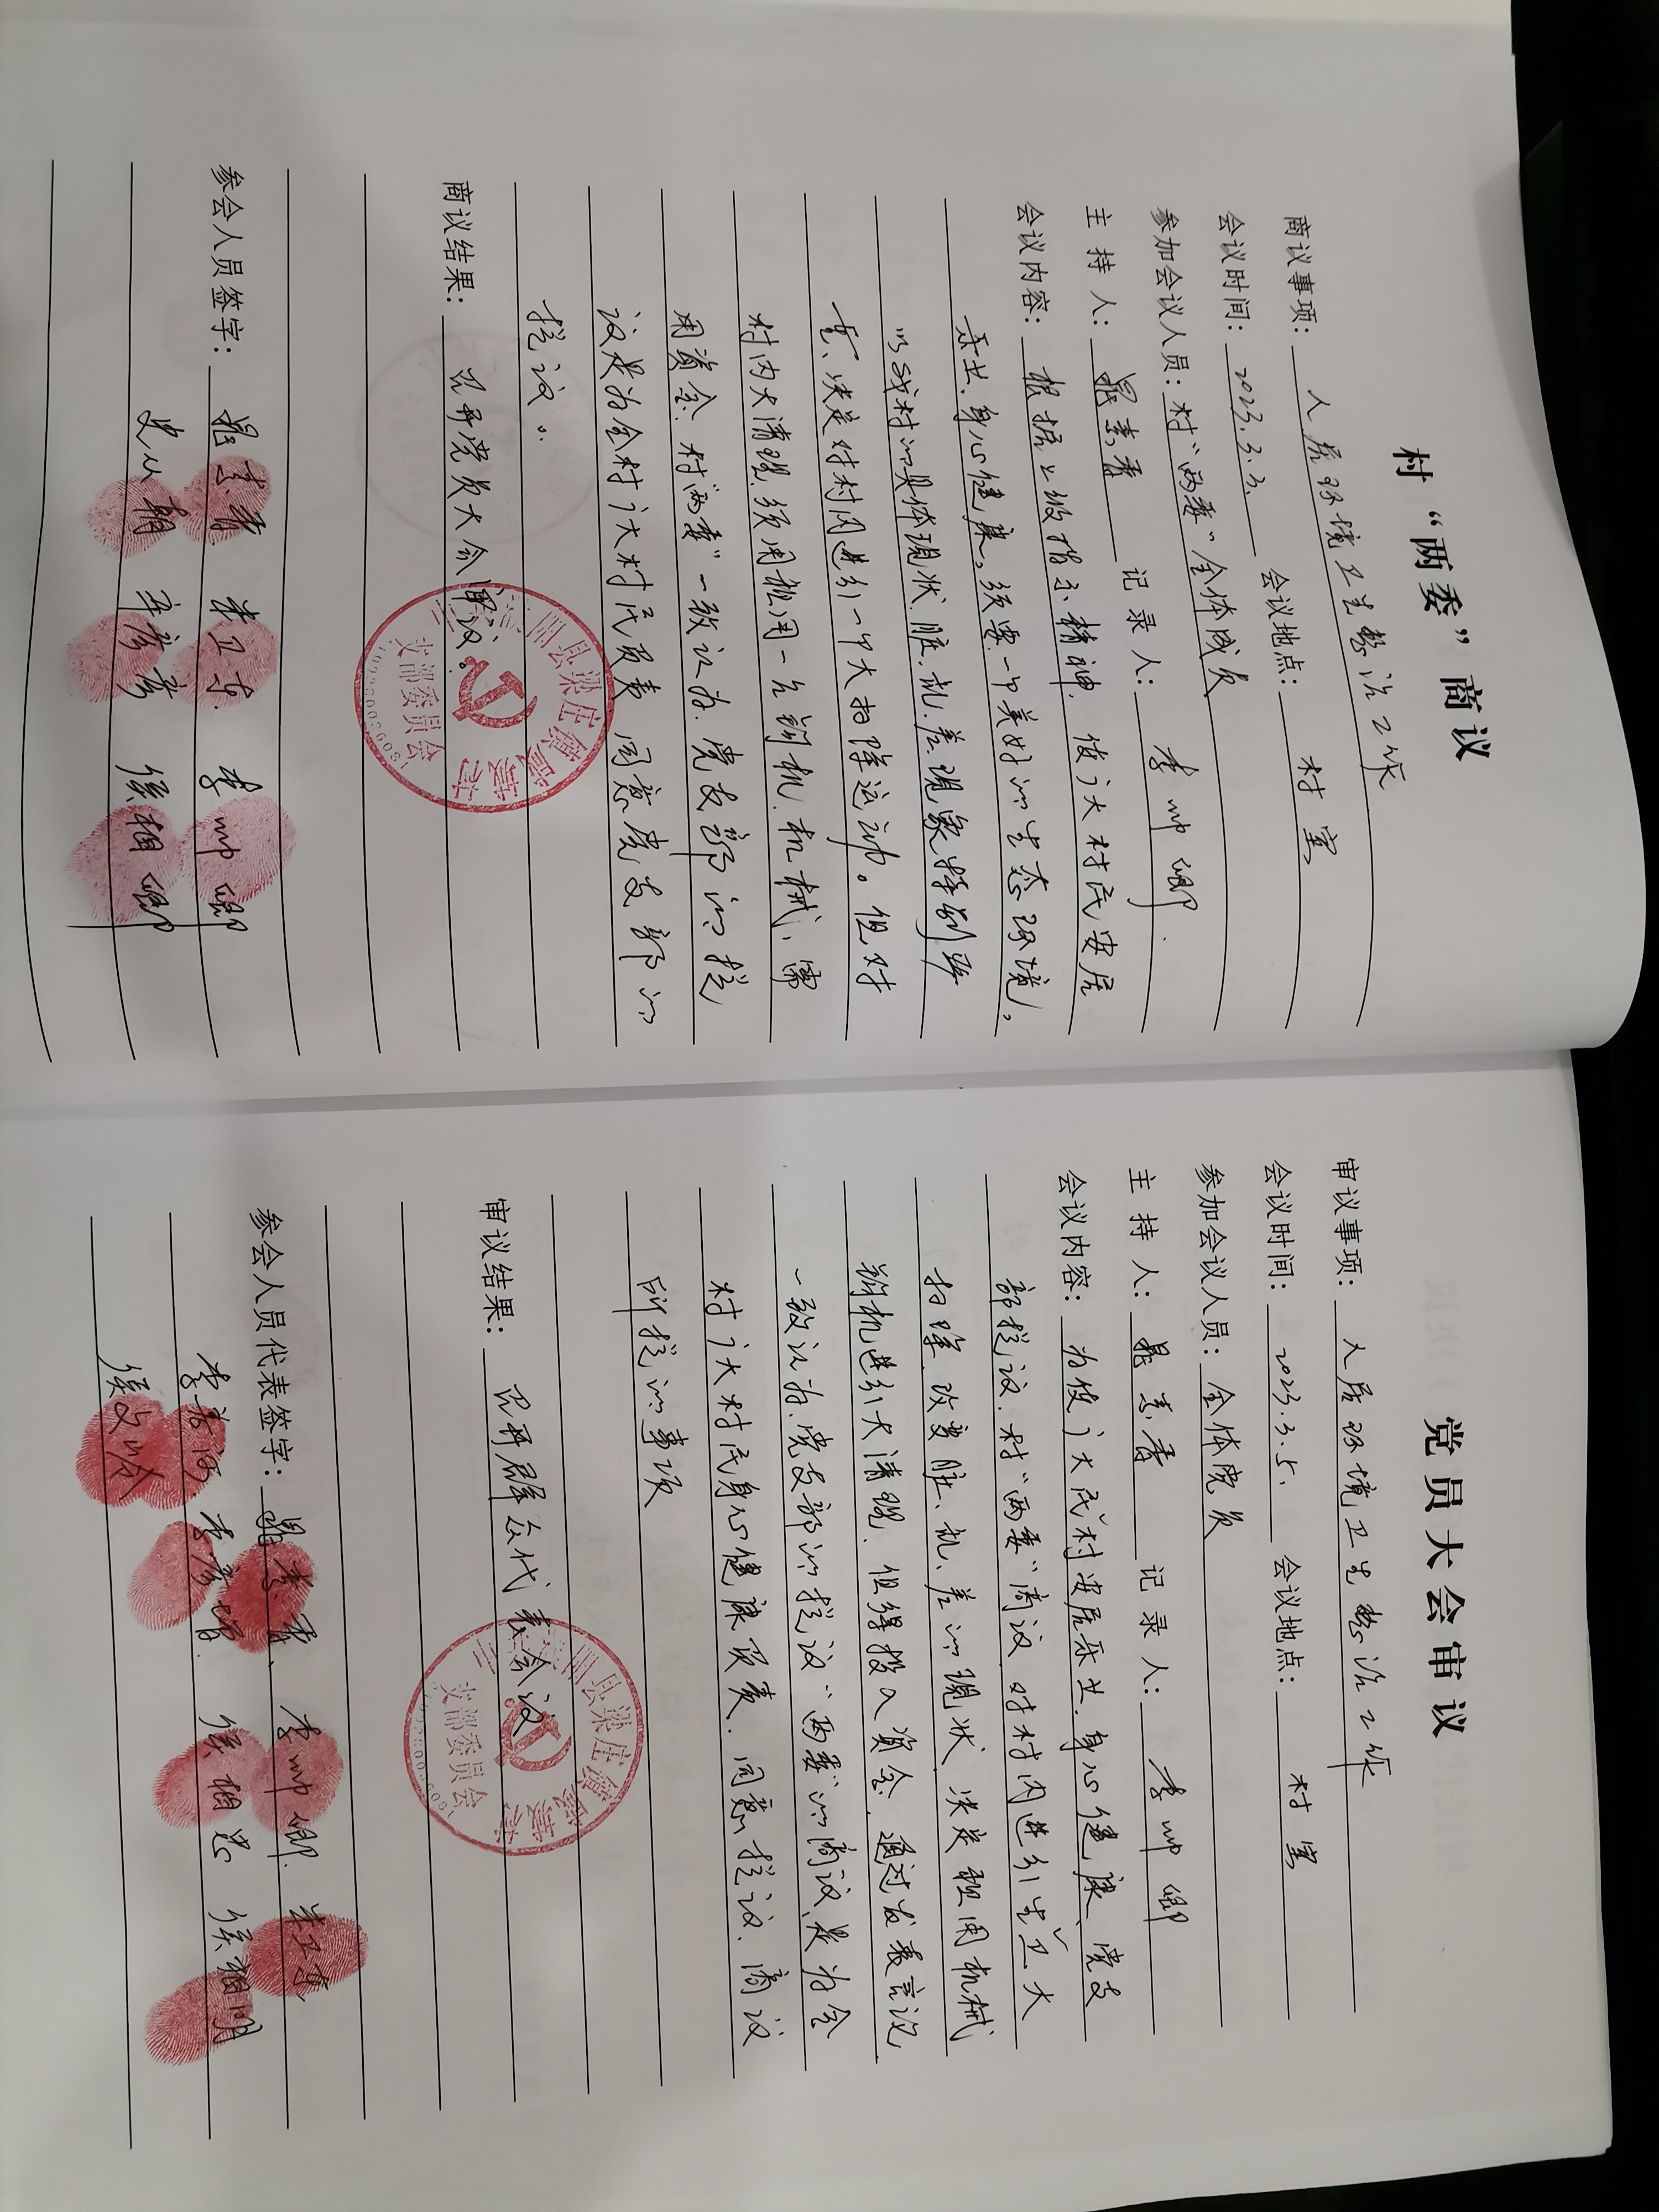 村“两委”商议
商议事项：人居环境卫生整治工作
会议时间：2023.3.3. 会议地点：村室
参加会议人员：村“两委”全体成员
主 持 人：晁素香 记 录 人：李帅卿.
会议内容：根据上级指示精神，使广大村民安居
乐业、身心健康。须要一个美好的生态环境，
以我村的具体现状、脏、乱、差、现象特别严
重、决定对村内进引一个大扫除运动。但对
村内大清理、须用租用一台钩机、机械、需
用资金、村“两委”一致认为、党支部的提
议是为全村广大村民负责 同意党支部的
提议。
商议结果：召开党员大会审议。
县梁庄镇咸城村
支部委员会
参会人员签字：晁素香. 朱卫东. 李帅卿
史从朝 辛彦彦 侯相卿
党员大会审议
审议事项：人居环境卫生整治工作
会议时间：2023.3.5. 会议地点：村室
参加会议人员：全体党员
主 持 人：晁素香 记 录 人：李帅卿
会议内容：为使广大民村安居乐业、身心健康、党支
部提议、村“两委”商议 对村内进引生卫大
扫除、改变脏、乱、差的现状、决定租用机械
钩机进引大清理、但得投入资金、通过发表言论
一致认为、党支部的提议“两委”的商议、是为全
村广大村民身心健康负责、同意提议、商议
所提的事项
审议结果：召开群众代表会议
县梁庄镇咸城村
支部委员会
参会人员代表签字：晁素香、李帅卿. 朱卫东
李善河 李彦增. 侯相忠 侯相明
侯文岭